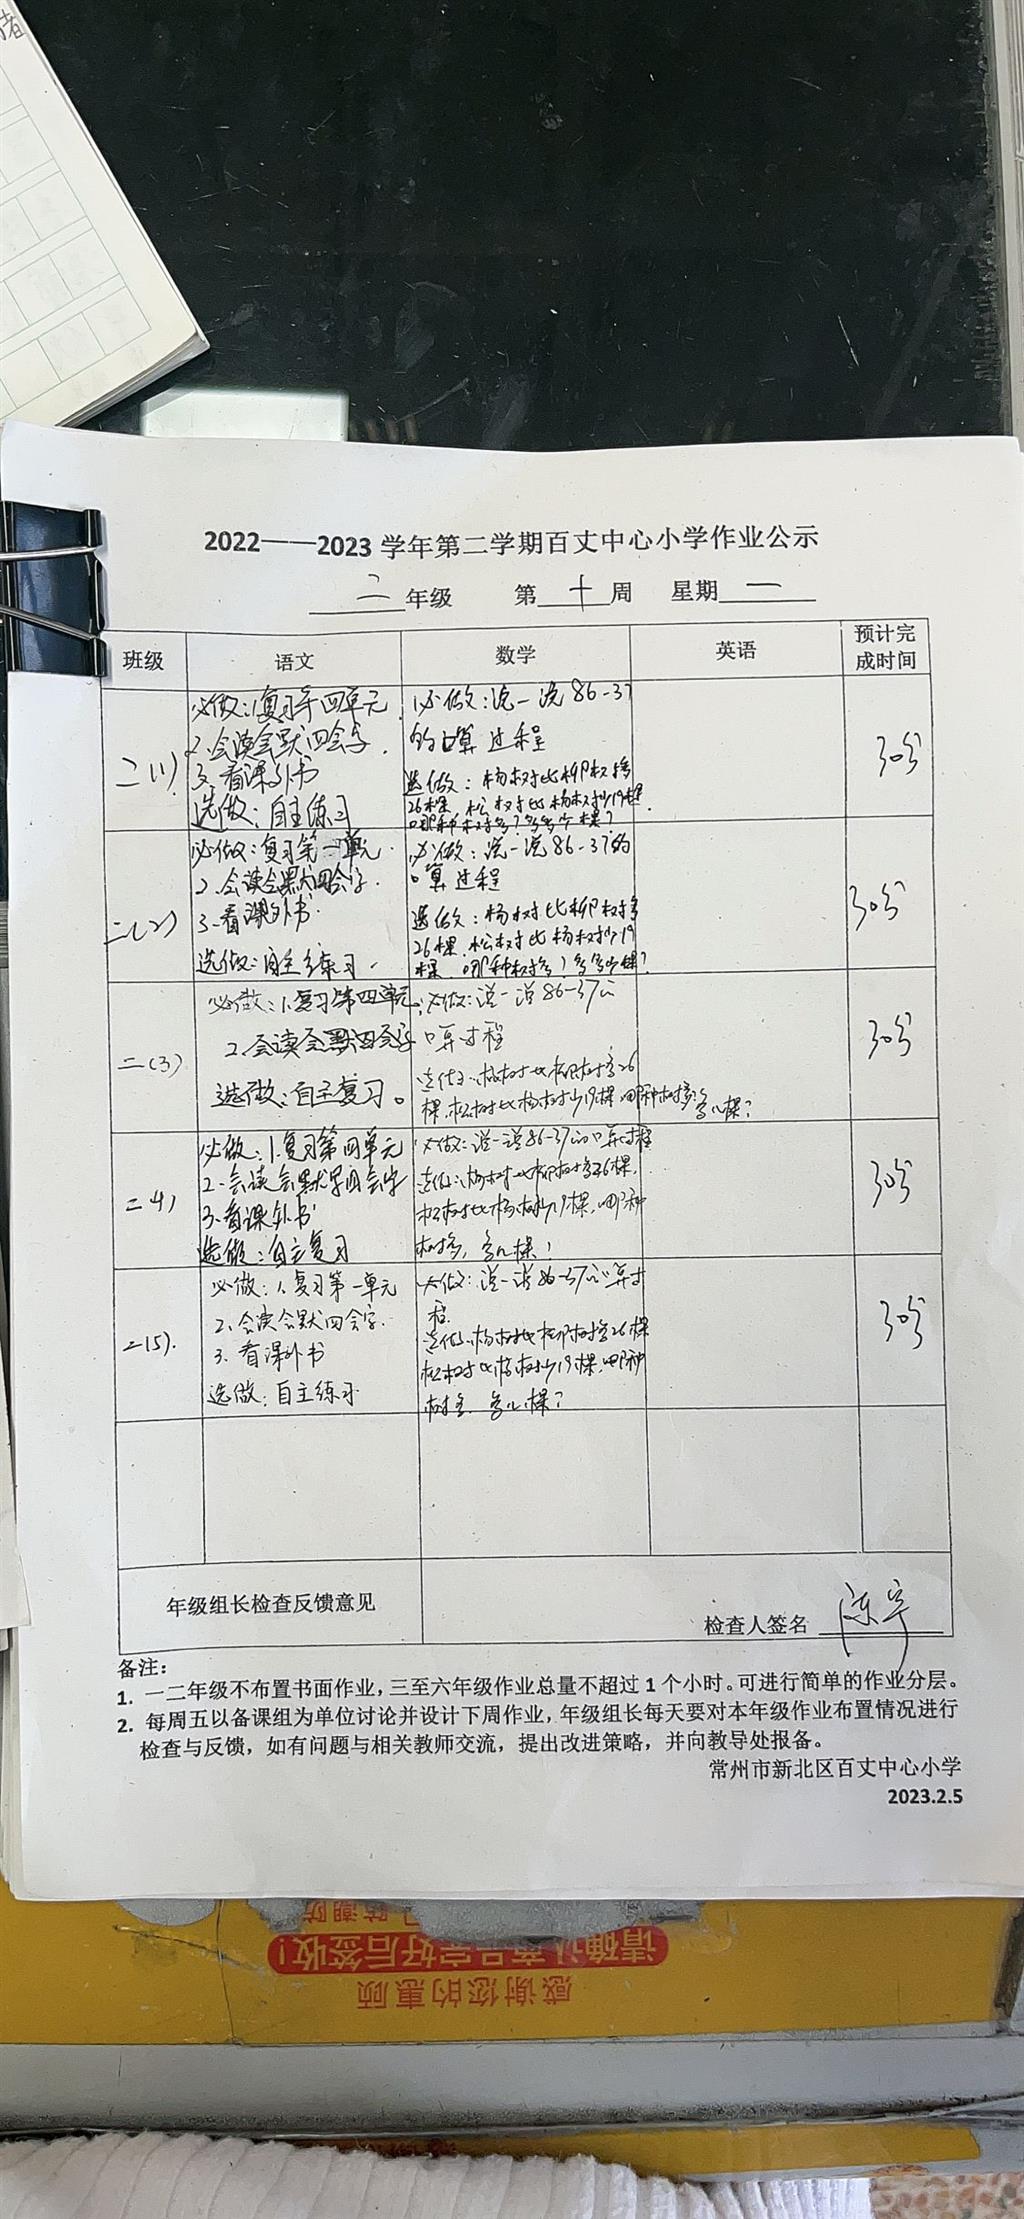 2022——2023 学年第二学期百丈中心小学作业公示
二年级 第十周 星期一
班级 语文 数学 英语 预计完成时间
二(1)
必做:1.复习第四单元
2.会读会默四会字.
3.看课外书
选做:自主练习
必做:说一说86-37
的口算过程
选做:杨树比柳树多
26棵,松树比杨树少19棵.
哪种树多?多多少棵?
30分
二(2)
必做:复习第一单元.
2.会读会默四会字.
3.看课外书.
选做:自主练习.
必做:说一说86-37的
口算过程
选做:杨树比柳树多
26棵,松树比杨树少19
棵.哪种树多?多多少棵?
30分
二(3)
必做:1.复习第四单元
2.会读会默四会字
选做:自主复习。
必做:说一说86-37的
口算过程
选做:杨树比柳树多26
棵,松树比杨树少19棵.哪种树多.多几棵?
30分
二(4)
必做:1.复习第四单元
2.会读会默写四会字
3.看课外书
选做:自主复习
必做:说一说86-37的口算过程
选做:杨树比柳树多26棵,
松树比杨树少19棵,哪种
树多,多几棵?
30分
二(5).
必做:1.复习第一单元
2.会读会默四会字.
3.看课外书
选做:自主练习
必做:说一说86-37的口算过
程.
选做:杨树比柳树多26棵
松树比杨树少19棵,哪种
树多.多几棵?
30分
年级组长检查反馈意见
检查人签名
备注:
1. 一二年级不布置书面作业,三至六年级作业总量不超过 1 个小时。可进行简单的作业分层。
2. 每周五以备课组为单位讨论并设计下周作业,年级组长每天要对本年级作业布置情况进行
检查与反馈,如有问题与相关教师交流,提出改进策略,并向教导处报备。
常州市新北区百丈中心小学
2023.2.5
请确认商品完好后签收!
感谢您的惠顾